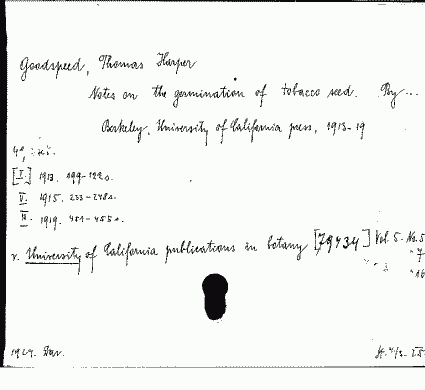 Goodspeed, Thomas Harper
Notes on the germination of tobacco seed. By ...
Berkeley, University of California press, 1913-19
4°,
[I.] 1913. 199-222 s.
II. 1915. 233-248 s.
III. 1919. 451-455 s.
v. University of California publications in botany [79434] Vol. 5. No. 5
" 7
" 16
1924.